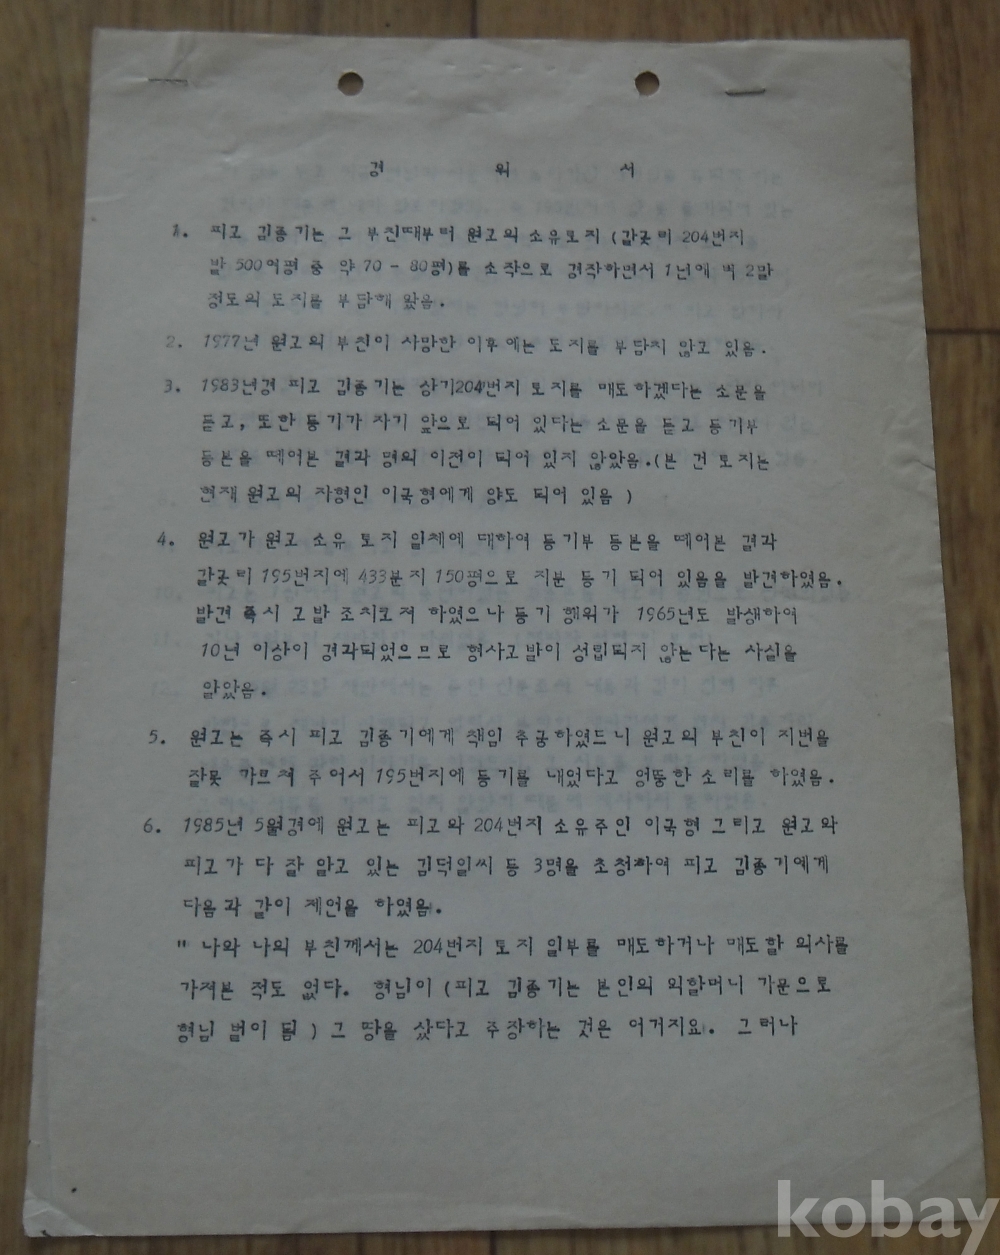 경 위 서
1. 피고 김종기는 그 부친때부터 원고의 소유토지 (갈굿리 204번지
밭 500여평 중 약 70 - 80평)를 소작으로 경작하면서 1년에 벼 2말
정도의 도지를 부담해 왔음.
2. 1977년 원고의 부친이 사망한 이후에는 도지를 부담지 않고 있음.
3. 1983년경 피고 김종기는 상기204번지 토지를 매도하겠다는 소문을
듣고, 또한 등기가 자기 앞으로 되어 있다는 소문을 듣고 등기부
등본을 떼어본 결과 명의 이전이 되어 있지 않았음.(본 건 토지는
현재 원고의 자형인 이국형에게 양도 되어 있음 )
4. 원고가 원고 소유 토지 일체에 대하여 등기부 등본을 떼어본 결과
갈굿리 195번지에 433분지 150평으로 지분 등기 되어 있음을 발견하였음.
발견 즉시 고발 조치코져 하였으나 등기 행위가 1965년도 발생하여
10년 이상이 경과되었으므로 형사고발이 성립되지 않는다는 사실을
알았음.
5. 원고는 즉시 피고 김종기에게 책임 추궁하였드니 원고의 부친이 지번을
잘못 가르쳐 주어서 195번지에 등기를 내었다고 엉뚱한 소리를 하였음.
6. 1985년 5월경에 원고는 피고와 204번지 소유주인 이국형 그리고 원고와
피고가 다 잘 알고 있는 김덕일씨 등 3명을 초청하여 피고 김종기에게
다음과 같이 제언을 하였음.
" 나와 나의 부친께서는 204번지 토지 일부를 매도하거나 매도할 의사를
가져본 적도 없다. 형님이 (피고 김종기는 본인의 외할머니 가문으로
형님 벌이 됨 ) 그 땅을 샀다고 주장하는 것은 어거지요. 그러나
kobay